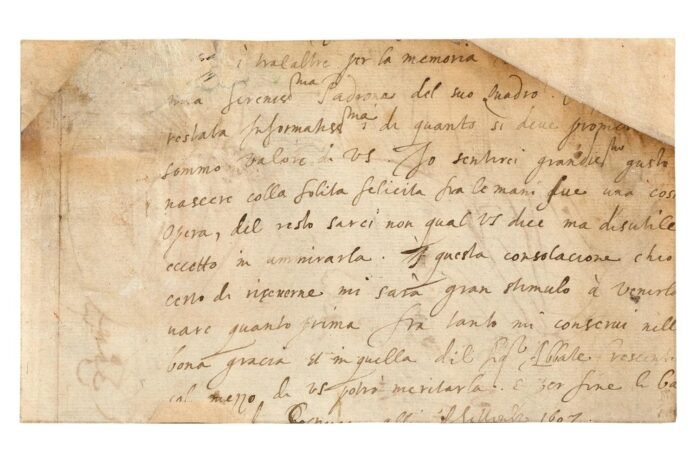 i tralaltre per la memoria
mia Sereniss^ma Padrona del suo Quadro.
restata Informatiss^ma di quanto si deve prometter
sommo valore di VS. Io sentirei grandis^mo gusto
nascere colla solita felicita fra le mani sue una cosi
Opera, del resto sarei non qual VS dice ma disutile
eccetto in ammirarla. questa consolatione chio
certo di riceverne mi sarà gran stimolo à venirlo
vare quanto prima fra tanto mi conservi nell
bona gratia et in quella del Sig^r Abbate Crescen
col mezzo di VS potro meritarla. E per fine le ba
1607.